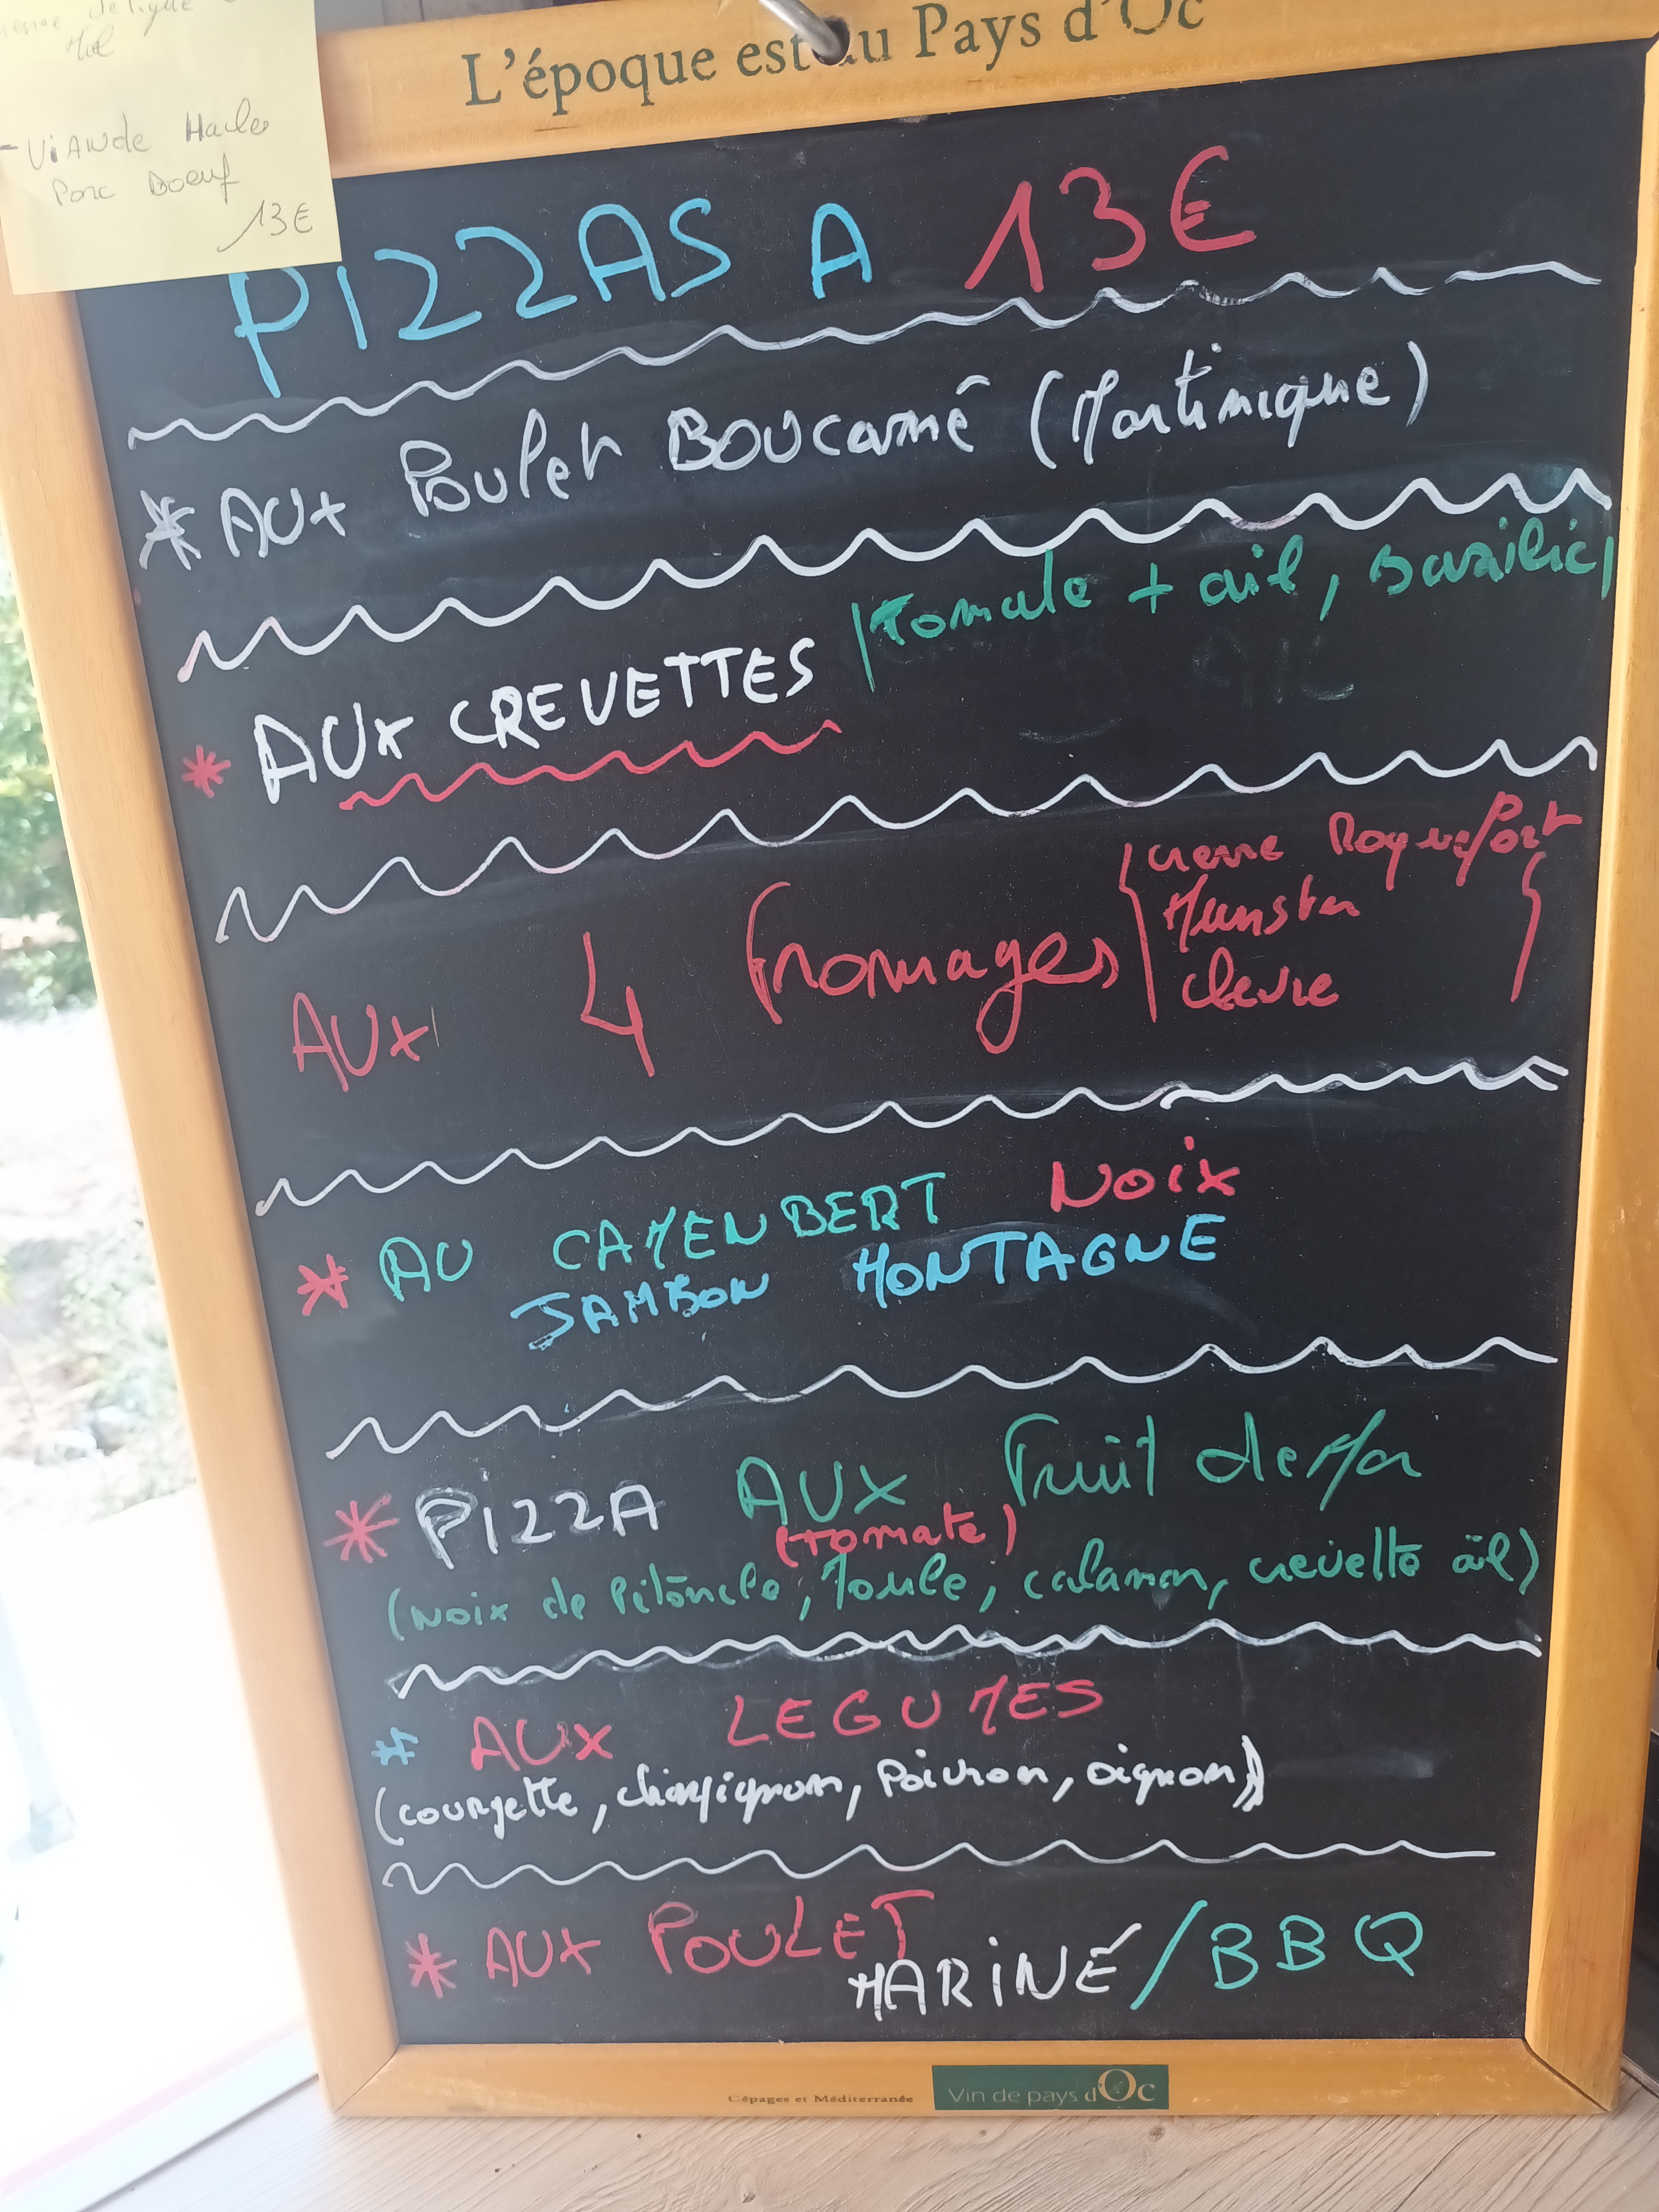 Miel
- Viande Hachee
Porc Boeuf
13€
L'époque est au Pays d'Oc
PIZZAS A 13€
* AUX Poulet BOUcanné (Martinique)
* AUX CREVETTES (tomate + ail, bazilic)
AUX 4 Fromages { creme Roquefort
Munster
chevre }
* AU CAMENBERT NOIX
JAMBON MONTAGNE
* PIZZA AUX Fruit de Mer
(tomate)
(Noix de Pétoncle, Moule, calamar, crevette ail)
* AUX LEGUMES
(courgette, champignon, Poivron, oignon)
* AUX POULET
MARINÉ / BBQ
Cépages et Méditerranée
Vin de pays d'Oc